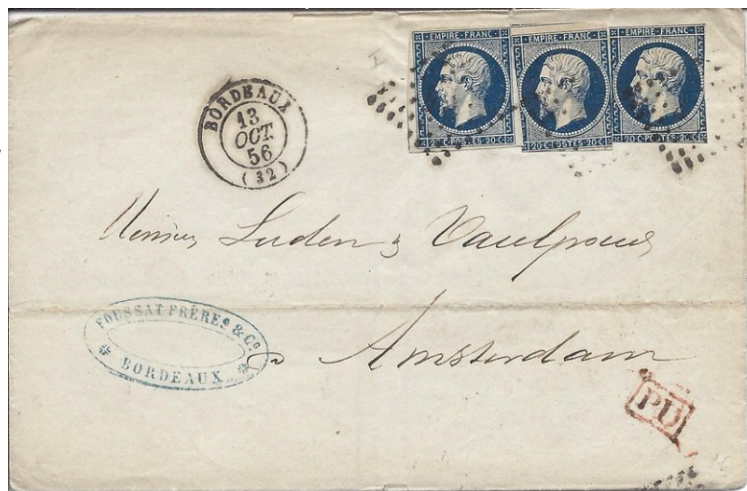 EMPIRE · FRANC ·
20 C · POSTES · 20 C
EMPIRE · FRANC ·
20 C · POSTES · 20 C
EMPIRE · FRANC ·
20 C · POSTES · 20 C
BORDEAUX
13
OCT.
56
(32)
Luden &
FOUSSAT FRÈRES & Co
BORDEAUX
Amsterdam
PD